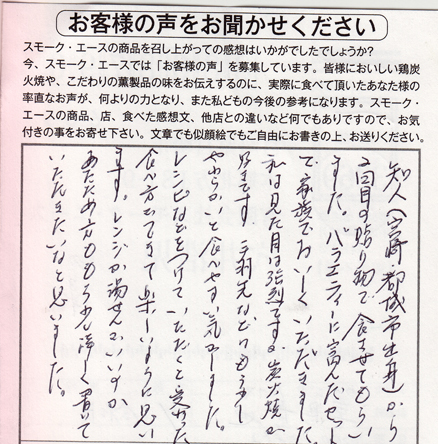 お客様の声をお聞かせください
スモーク・エースの商品を召し上がっての感想はいかがでしたでしょうか?
今、スモーク・エースでは「お客様の声」を募集しています。皆様においしい鶏炭
火焼や、こだわりの薫製品の味をお伝えするのに、実際に食べて頂いたあなた様の
率直なお声が、何よりの力となり、また私どもの今後の参考になります。スモーク・
エースの商品、店、食べた感想文、他店との違いなど何でもありですので、お気
付きの事をお寄せ下さい。文章でも似顔絵でもご自由にお書きの上、お送りください。
知人(宮崎 都城市出身)から
2回目の贈り物で食させてもらい
ました。バラエティーに富んだセット
で、家族でおいしくいただきました。
私は見た目は強烈ですが炭火焼が
好きです。手羽先などはもう少し
やわらかいと食べやすい気がしました。
レシピなどをつけていただくと変わった
食べ方もできて楽しいように思い
ます。レンジか湯せんがいいのか
あたため方ももう少し詳しく書いて
いただきたいなと思いました。